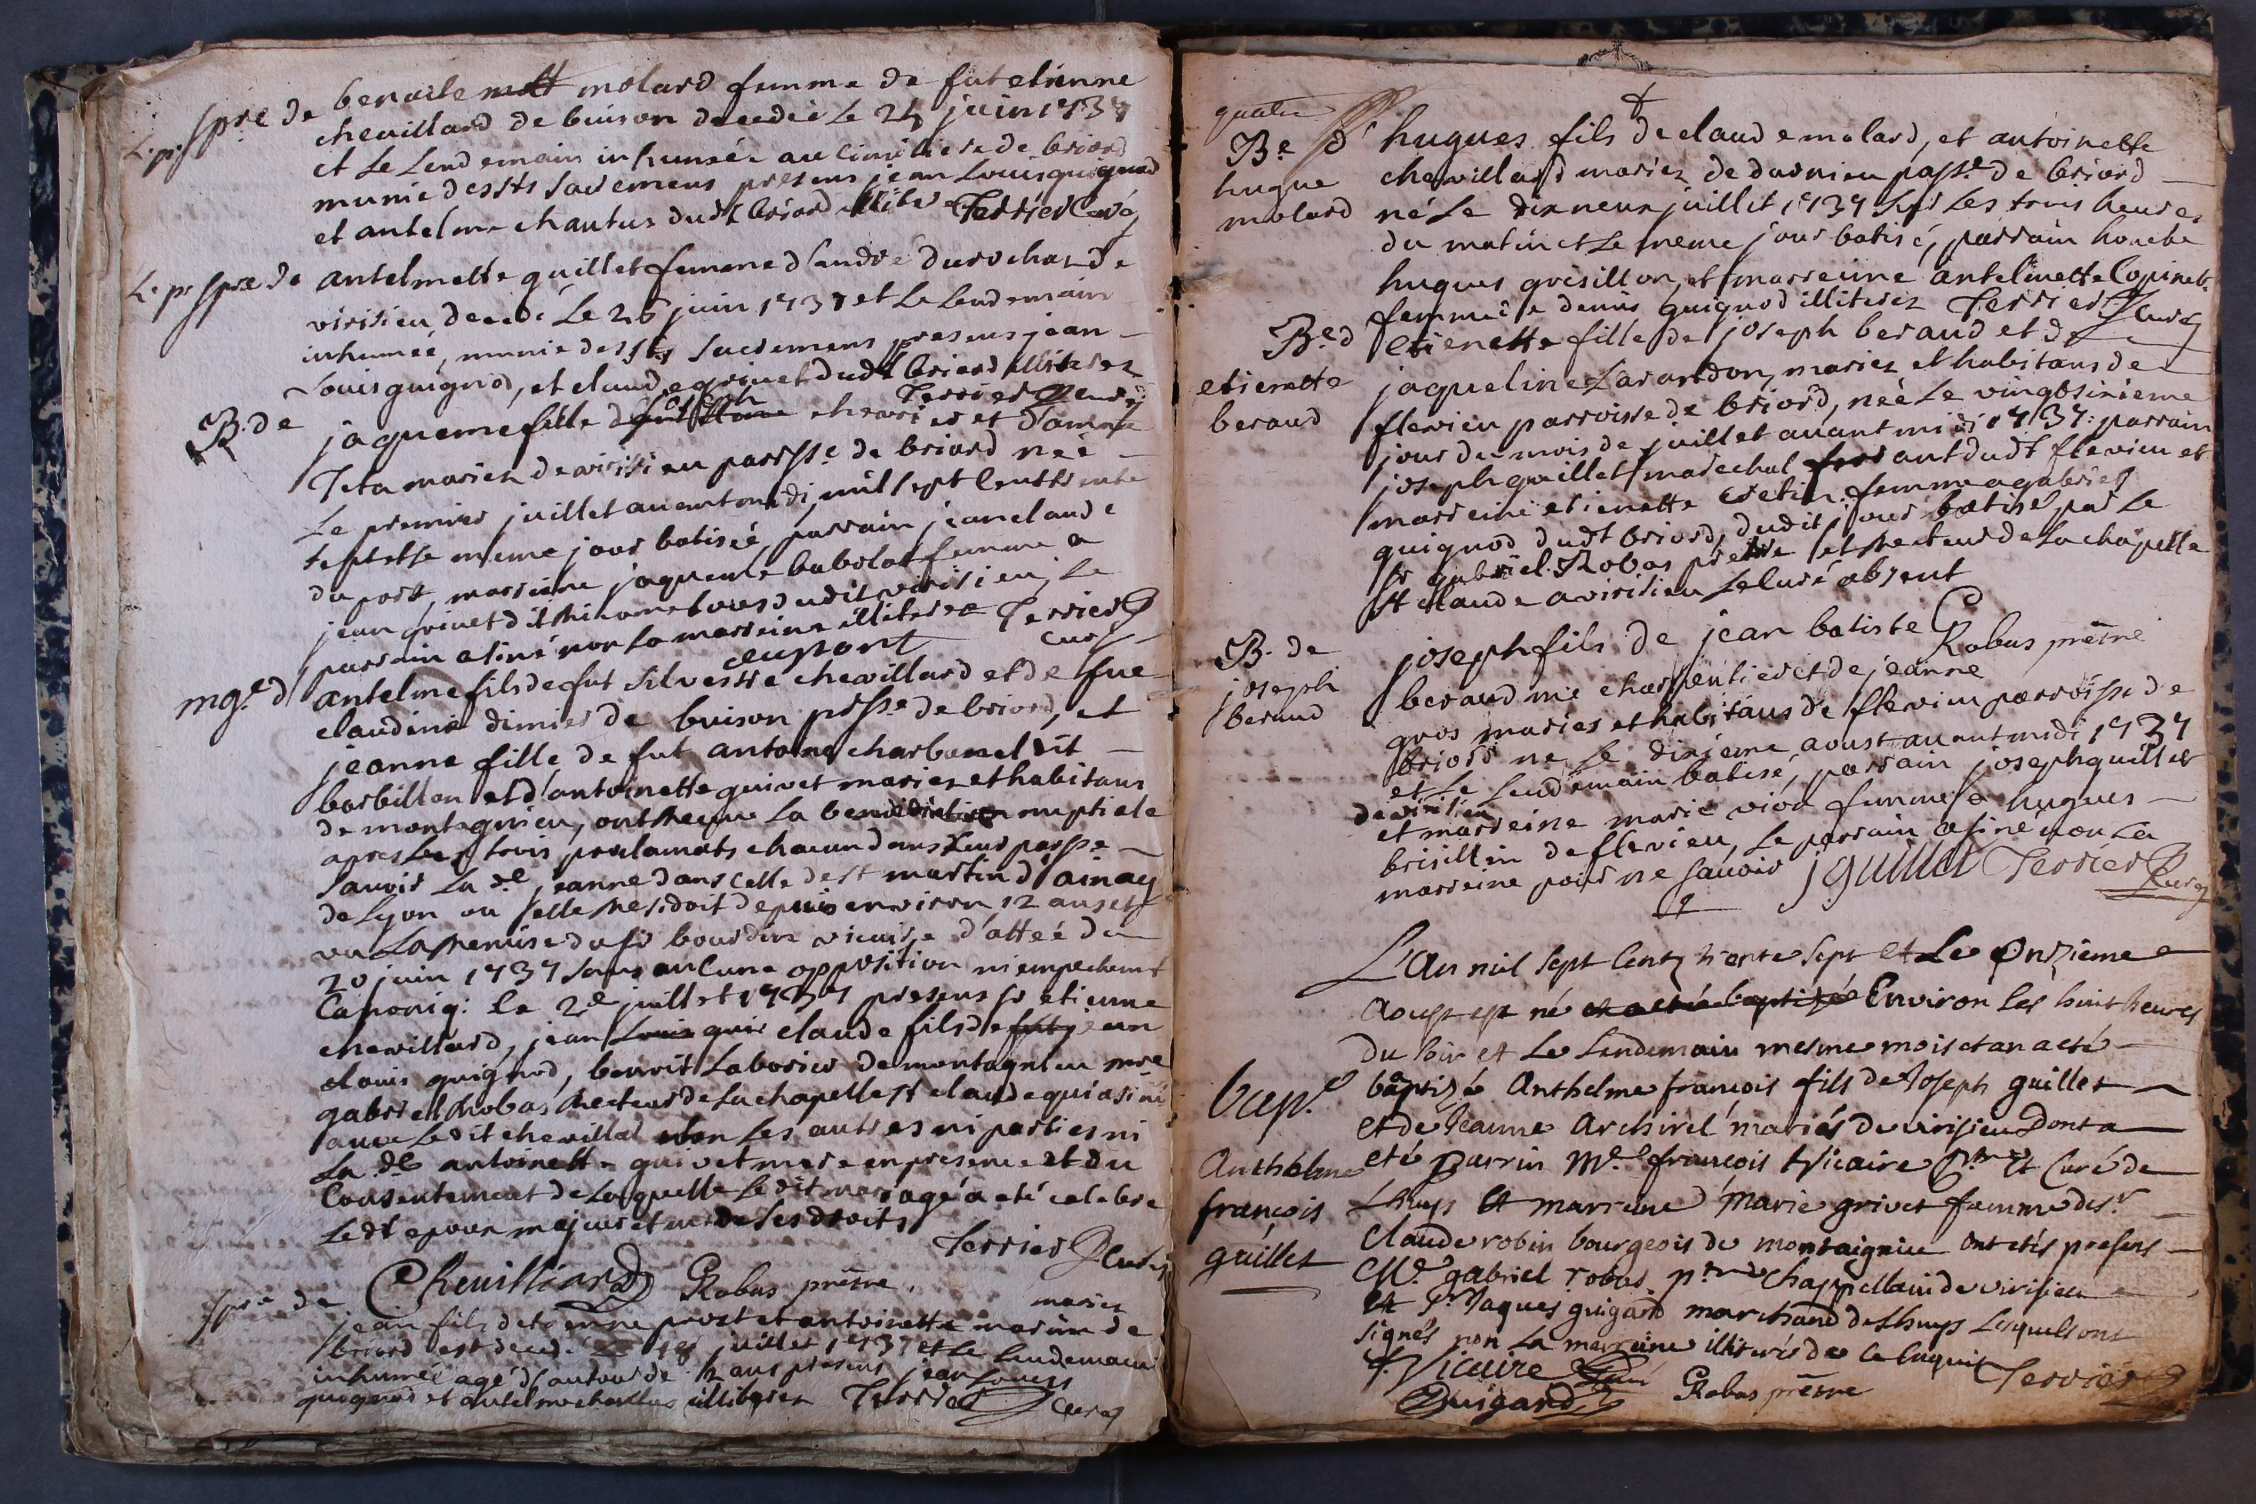 L. pr. spre de benoite mott molard femme de fut etienne
chevillard de buison decedée le 24 juin 1737
et le lendemain inhumée au cimetiere de briord
munie des sts sacremens presens jean Louis guignod
et antelme chantus dudt briord Terrier Curé
L. pr spre de antelmette guillet femme d'andré durochat de
virisieu decedé Le 26 juin 1737 et le lendemain
inhumée, munie des sts sacremens presens jean
Louis guignod, et claude grivet dudt briord illiterez
Terrier Curé
B. de jaqueme fille de joseph charier et d'anne
Teta mariez de virisieu parsse. de briord née
Le premier juillet avant midi, mil sept cent trente
sept et le meme jour batisée, parrain jean claude
du port, marreine jaqueme babolat femme a
jean grivet dit dudit virisieu, Le
parrain a siné non la marreine illiteree Terrier
duport Curé
mge. d' antelme fils de fut silvestre chevillard et de fue
claudine dimier de buison psse. de briord, et
jeanne fille de fut antoine charbonel dit
barbillon et d'antoinette guivet mariez et habitans
de montagnieu, ont reçeu la benediction nuptiale
apres les trois proclamats chacun dans leur parsse
sauoir la de. jeanne dans celle de st martin d'ainay
de Lyon ou elle residoit depuis environ 12 ans et
vu La remise du sr bourdin vicaire d'attée du
20 juin 1737 sans aucune opposition ni empechemt
Canoniq: le 2e juillet 1737 presens sr etienne
chevillard, jean Louis claude fils de jean
Louis guignod, benoit Laborier de montagnieu mre
gabriel Robas Recteur de La chapelle st claude qui a siné
avec Ledit chevillard non Les autres ni parties ni
La de antoinette guivet mere en presence et du
Consentement de Laquelle Ledit mariage a eté celebré
Ledt epoux majeur et me de ses droits
Terrier Curé
Cheuilliard Robas prêtre
spre de jean fils d'etienne prost et antoinette mariez de
briord est decedé Le 18 juillet 1737 et Le lendemain
inhumé agé d'autour de ans presens jean Louis
guignod et antelme chantus illiterez Terrier Curé
quatre
Be. d' hugues fils de claude molard, et antoinette
hugue chevillard mariez de dornieu passe. de briord
molard né Le dix neuf juillet 1737 sur Les trois heures
du matin et Le meme jour batisé, parrain honeste
hugues grisillon, et marreine antelmette Copinet
femme a denis guignod illiterez Terrier Curé
Be d etienette fille de joseph beraud et de
etienette jaqueline Larandon, mariez et habitans de
beraud flevieu parroisse de briord, née Le vingt sixieme
jour du mois de juillet avant midi 1737: parrain
joseph guillet marechal ferrant dudt flevieu et
marreine etienette cretin: femme a gabriel
guignod dudt briord, dudit jour batisé par Le
sr gabriel Robas pretre et Recteur de La chapelle
st claude a virisieu Le Curé absent
Robas prêtre
B. de joseph fils de jean batiste
joseph beraud me charpentier et de jeanne
beraud gros mariez et habitans de flevieu parroisse de
briord né le dixieme aoust avant midi 1737
et Le Lendemain batisé, parrain joseph guillet
de virisieu
et marreine marie viod femme a hugues
brisillin de flevieu, Le parrain a siné non La
marreine pour ne savoir j guillet Terrier Curé
L'an mil sept Cent trente sept et Le Onzieme
Aoust est né et a eté baptizé Environ les huit heures
du soir et Le Lendemain mesme mois et an a eté
bap.e baptizé Anthelme françois fils de Joseph guillet
et de Jeanne Archirel mariés de virisieu Dont a
Anthelme eté parrin Mre. françois Vicaire Ptre. et Curé de
françois Lhuys Et marreine Marie grivet femme de sr
guillet Claude robin bourgeois de montaignieu ont etés presens
Mre. gabriel robas ptre Chappellain de virisieu
et Sr Jaques guigard marchand de Lhuys Lesquels ont
signés non La marreine illiterée de Ce Enquis
f. Vicaire Curé Terrier
Guigard Robas prêtre